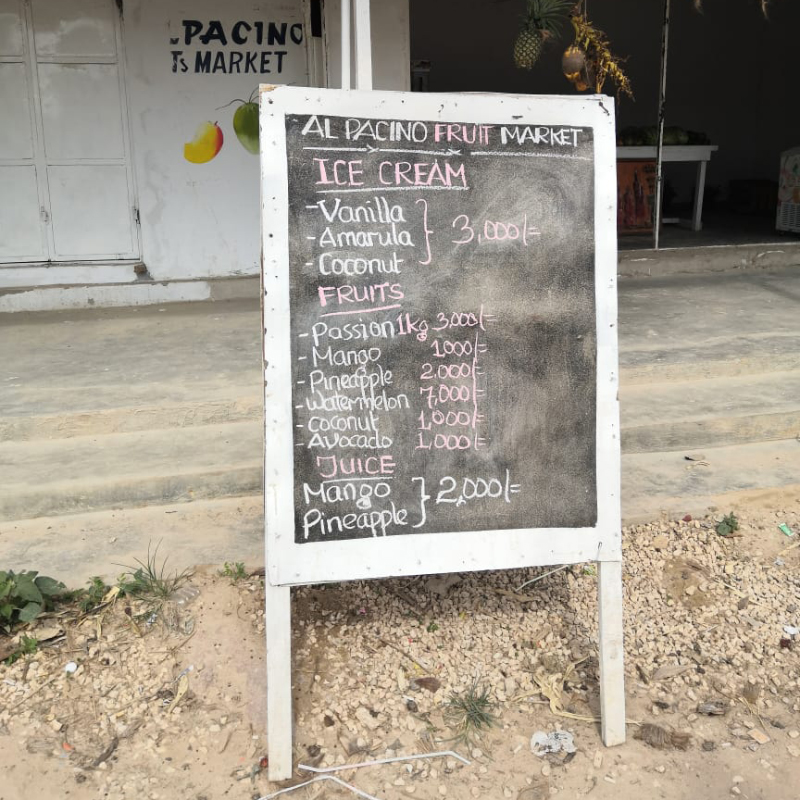 .PACINO
Ts MARKET
AL PACINO FRUIT MARKET
ICE CREAM
-Vanilla
-Amarula } 3,000/=
-Coconut
FRUITS
-Passion 1kg 3,000/=
-Mango 1000/=
-Pineapple 2,000/=
-watermelon 7,000/=
-coconut 1,000/=
-Avocado 1,000/=
JUICE
Mango } 2,000/=
Pineapple